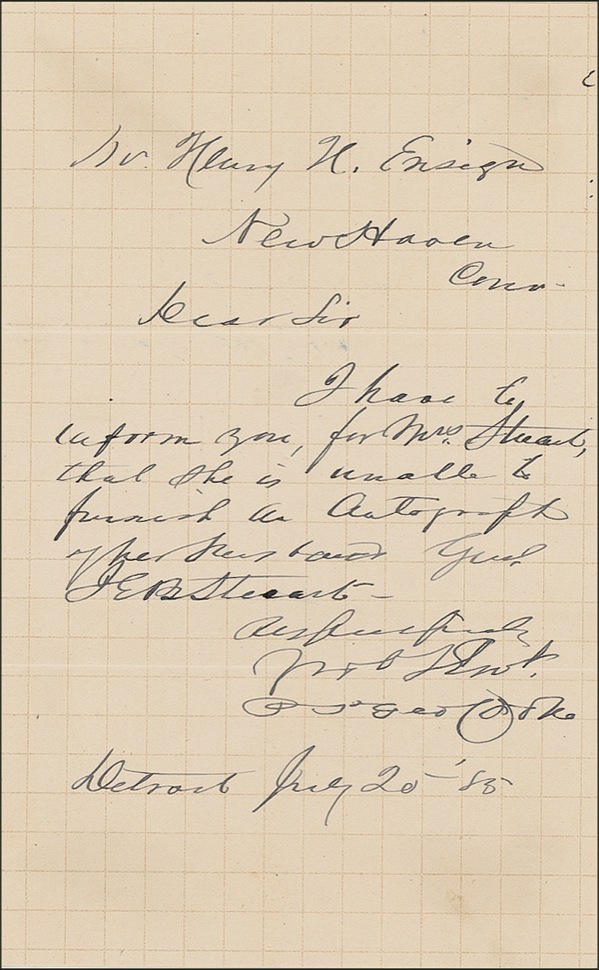 Mr. Henry H. Ensign
New Haven
Conn.
Dear Sir
I have to
inform you, for Mrs. Stuart,
that she is unable to
furnish an Autograph
of her husband Genl
J E B Stuart –
Respectfully
Yr obt Servt.
P. St. Geo Cooke
Detroit July 20 – '85